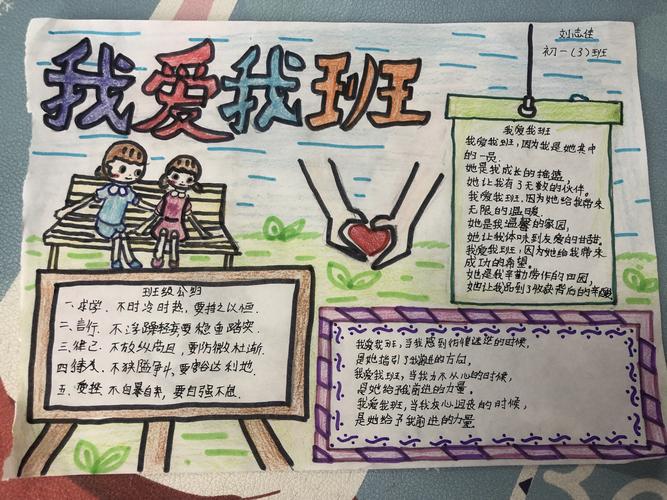 我爱我班
刘志佳
初一(3)班
我爱我班
我爱我班,因为我是她其中
的一员。
她是我成长的摇篮,
她让我有了无数的伙伴。
我爱我班,因为她给我带来
无限的温暖,
她是我温馨的家园,
她让我体味到友爱的甘甜。
我爱我班,因为她给我带来
成功的希望,
她是我辛勤劳作的田园,
她让我品到了收获背后的辛酸
班级公约
一、求学、不时冷时热,要持之以恒.
二、言行、不心浮轻率要稳重踏实.
三、律己、不放纵苟且,要防微杜渐.
四、待友、不狭隘争斗,要豁达利他.
五、受挫、不自暴自弃,要自强不息.
我爱我班,当我感到彷徨迷途的时候,
是她指引了我前进的方向.
我爱我班,当我力不从心的时候,
是她给予我前进的力量.
我爱我班,当我灰心沮丧的时候,
是她给予我前进的力量